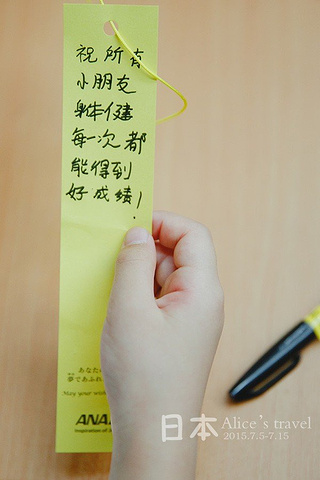 祝所有
小朋友
身体健
每一次都
能得到
好成绩！
あなた
夢であふれ
May your wis
ANA
Inspiration of
日本
Alice's travel
2015.7.5-7.15